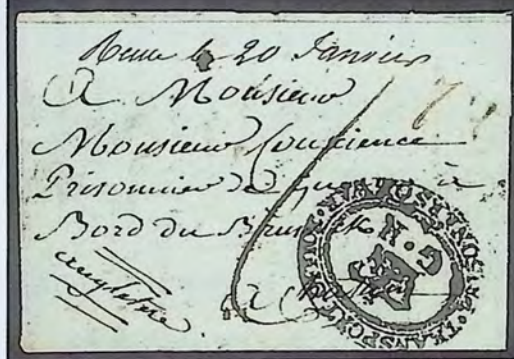 le 20 Janvier
A Monsieur
Monsieur Conscience
Prisonnier de guerre à
Bord du Brunswick
à
angleterre
TRANSPORT OFFICE PRISONERS OF WAR
G R